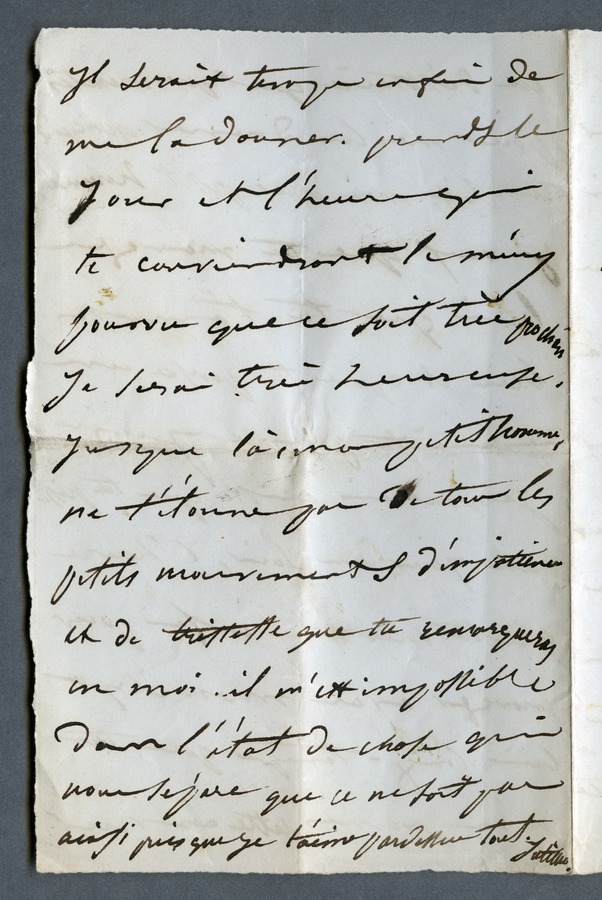 Il serait temps enfin de
me la donner. prends le
jour et l'heure qui
te conviendront le mieux
pourvu que ce soit très prochain
je serai très heureuse.
jusque là, mon petit homme,
ne t'étonne pas de tous les
petits mouvements d'impatience
et de tristesse que tu remarqueras
en moi. il m'est impossible
dans l'état de chose qui
nous sépare que ce ne soit pas
ainsi puisque je t'aime par dessus tout.
Juliette